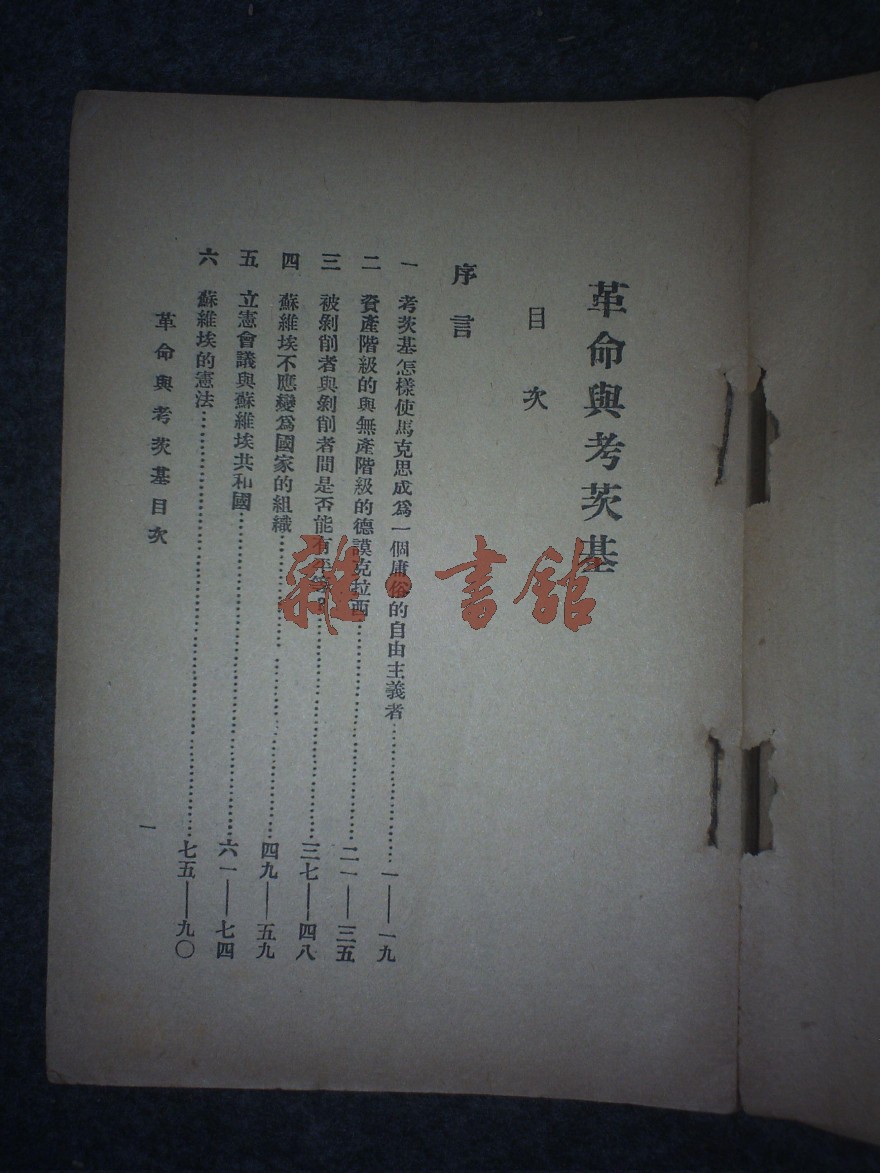 革命與考茨基
目次
序言
一 考茨基怎樣使馬克思成爲一個庸俗的自由主義者……一——一九
二 資產階級的與無產階級的德謨克拉西……二一——三五
三 被剝削者與剝削者間是否能有平等?……三七——四八
四 蘇維埃不應變爲國家的組織……四九——五九
五 立憲會議與蘇維埃共和國……六一——七四
六 蘇維埃的憲法……七五——九〇
革命與考茨基目次
一
雜·書館